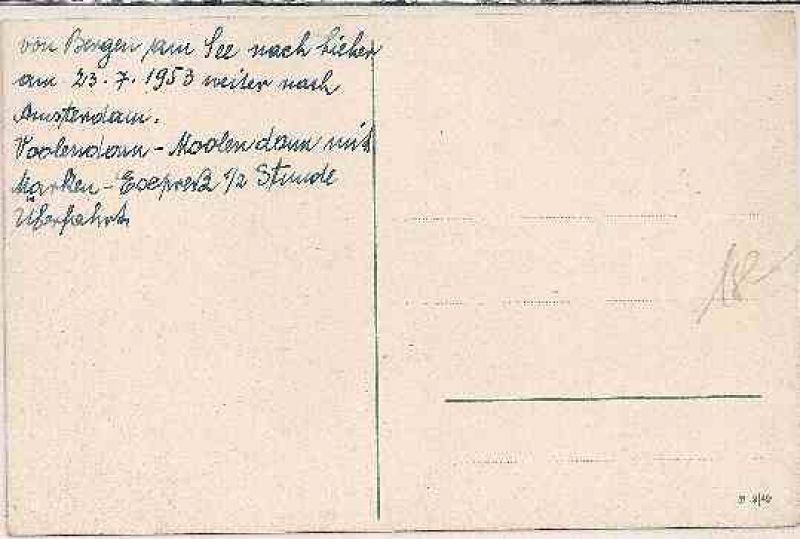 von Bergen am See nach hieher
am 23.7.1953 weiter nach
Amsterdam.
Voolendam - Moolendam mit
Marken - Eoepreß 1/2 Stunde
Überfahrt
18